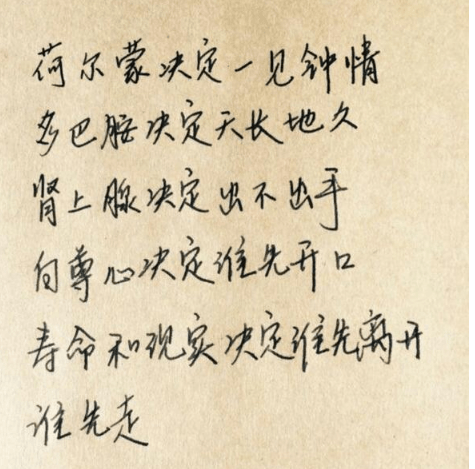 荷尔蒙决定一见钟情
多巴胺决定天长地久
肾上腺决定出不出手
自尊心决定谁先开口
寿命和现实决定谁先离开
谁先走